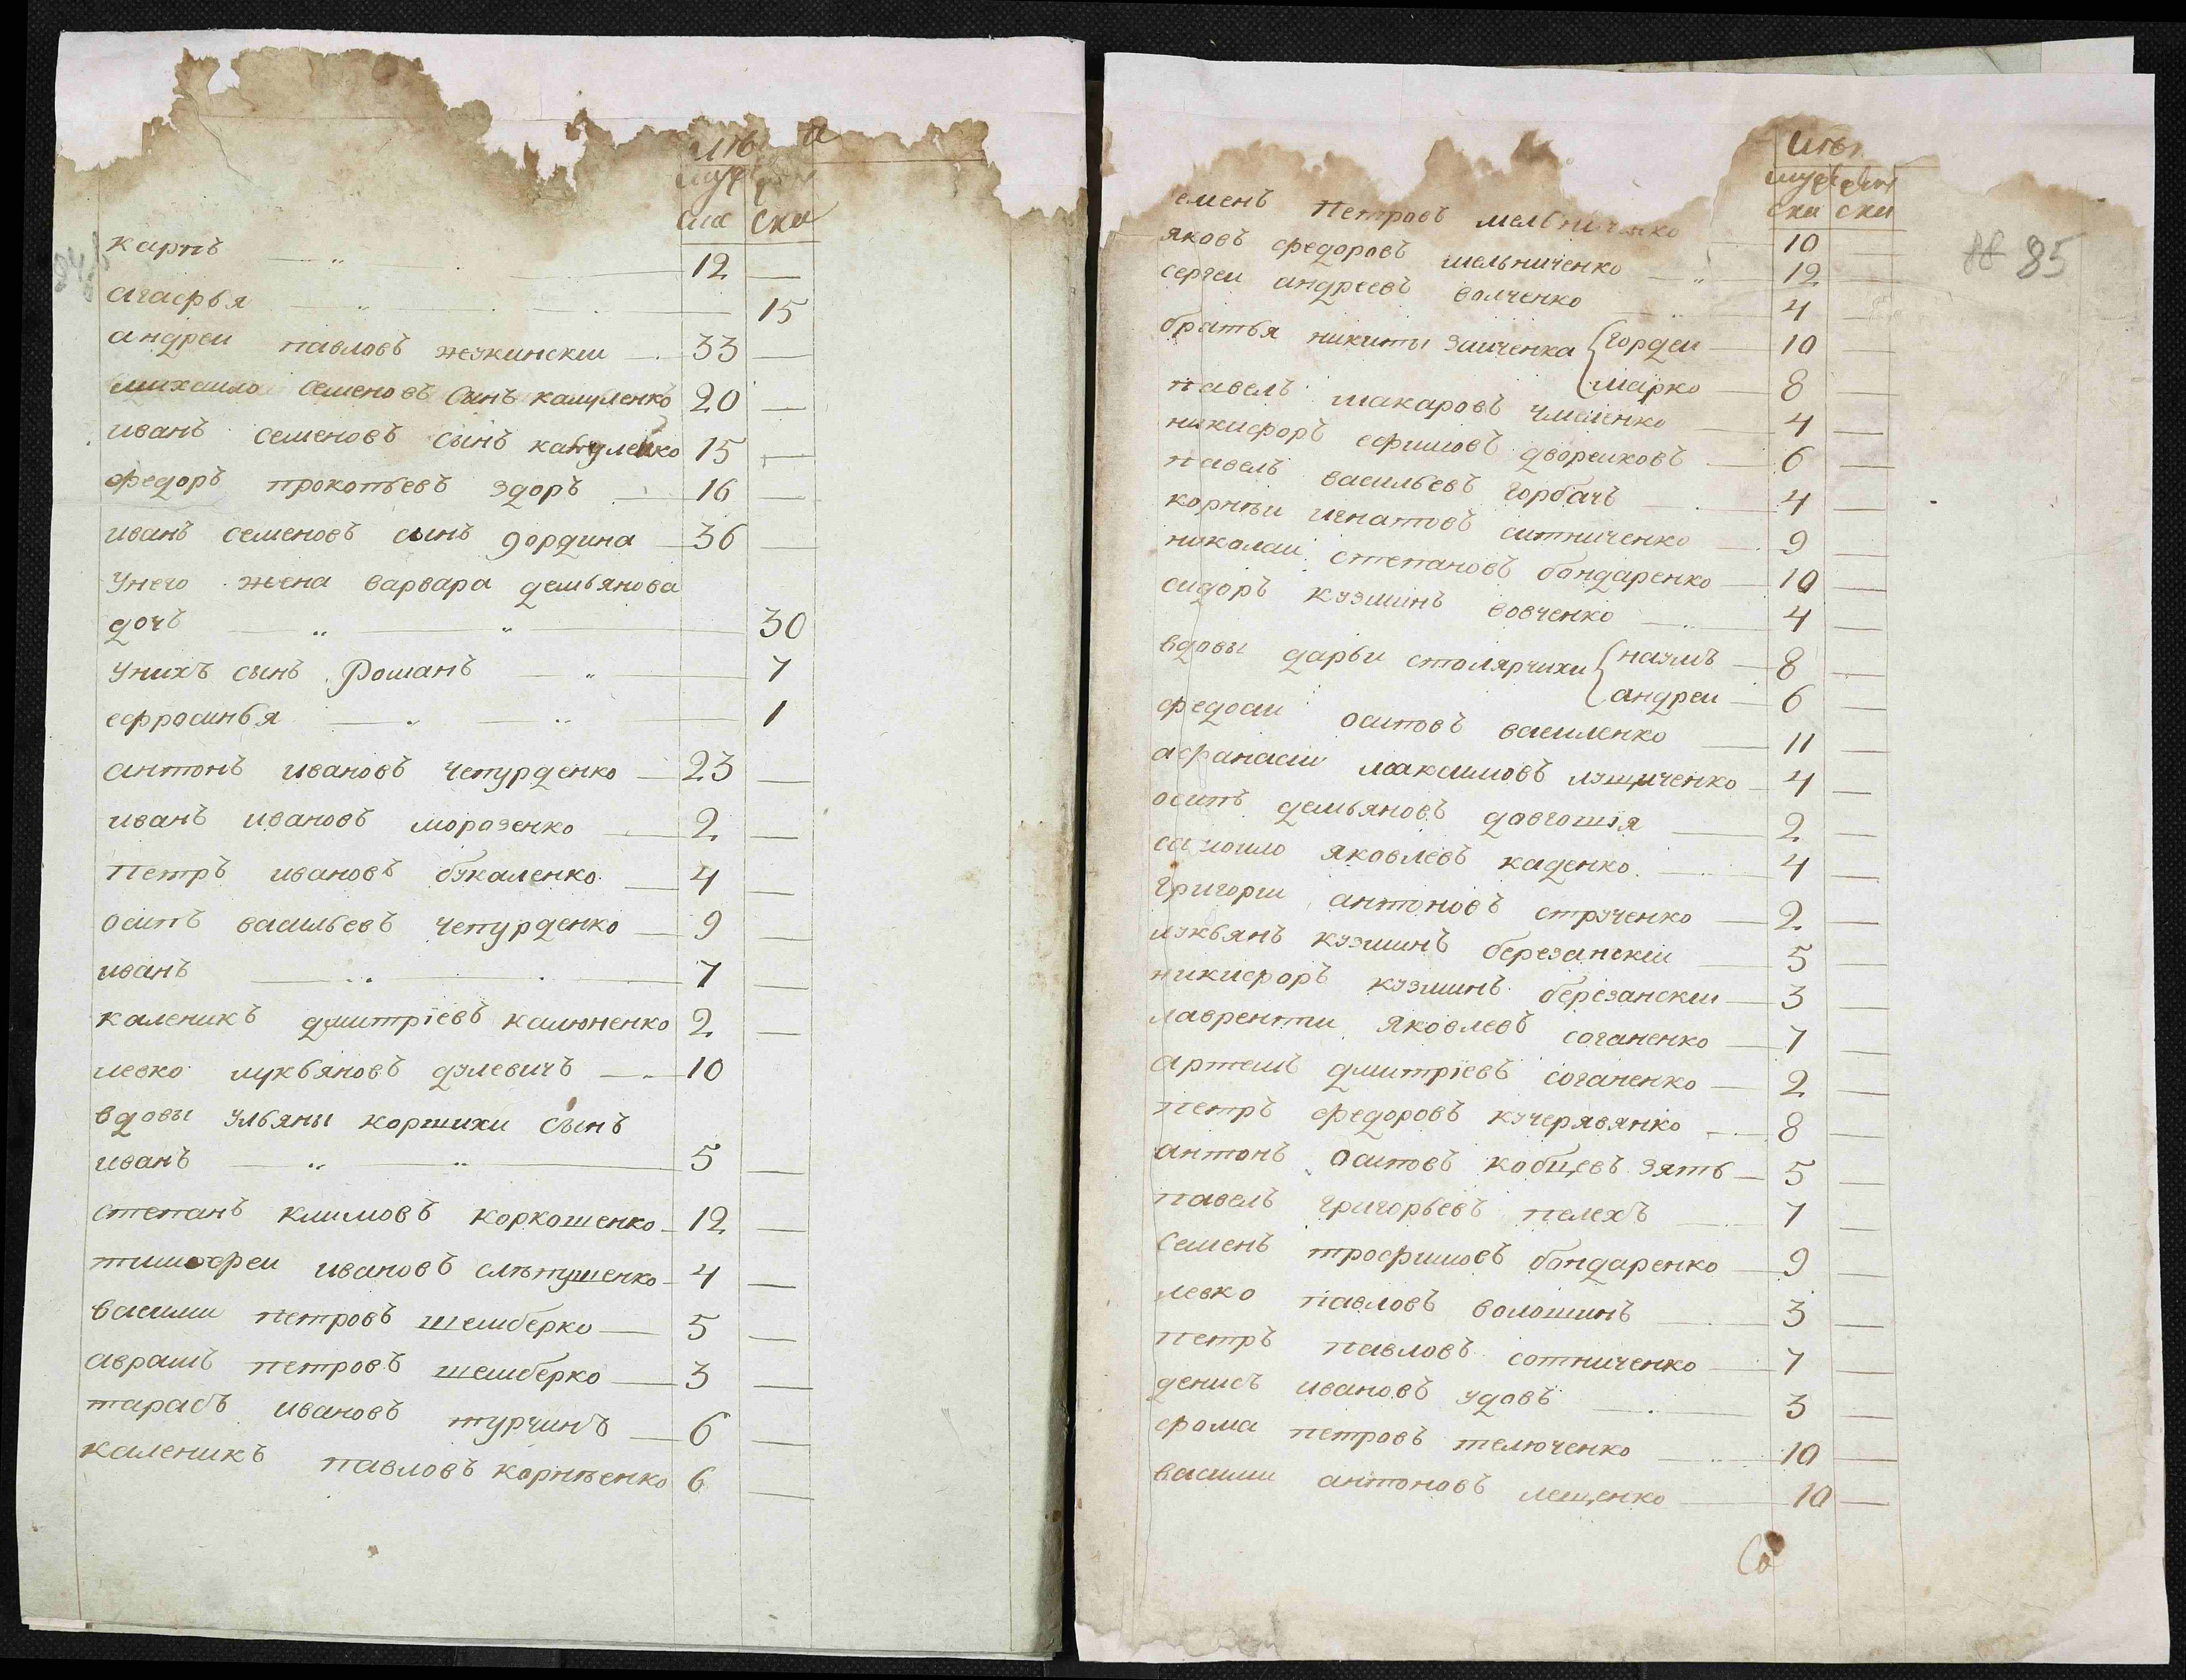 муж
ска
карпъ 12
агафья 15
андреи павловъ жежкинскии 33
михаило семеновъ сынъ капуленко 20
иванъ семеновъ сынъ капуленко 15
федоръ прокопьевъ здоръ 16
иванъ семеновъ сынъ дордина 36
унего жена варвара демьянова
дочъ 30
унихъ сынъ Романъ 7
ефросинья 1
антонъ ивановъ чепурденко 23
иванъ ивановъ морозенко 2
петръ ивановъ букаленко 4
осипъ васильевъ чепурденко 9
иванъ 7
каленикъ дмитріевъ калюненко 2
левко лукьяновъ дулевичъ 10
вдовы ульяны коршихи сынъ
иванъ 5
степанъ климовъ коркошенко 12
тимофеи ивановъ слѣпушенко 4
василии петровъ шемберко 5
аврамъ петровъ шемберко 3
тарасъ ивановъ турчинъ 6
каленикъ павловъ корнѣенко 6
лѣт
муж жен
ски ски
88 85
еменъ петровъ мельниченко 10
яковъ федоровъ мельниченко 12
сергеи андреевъ волченко 4
братья никиты заиченка гордеи 10
марко 8
павелъ макаровъ чмиленко 4
никифоръ ефимовъ двореиковъ 6
павелъ васильевъ горбачъ 4
корнѣи игнатовъ ситниченко 9
николаи степановъ бондаренко 10
сидоръ кузминъ вовченко 4
вдовы дарьи столярчихи наумъ 8
андреи 6
федосии осиповъ василенко 11
афанасии максимовъ лущиченко 4
осипъ демьяновъ довгошія 2
самоило яковлевъ каденко 4
григории антоновъ струченко 2
лукьянъ кузминъ березанскии 5
никифоръ кузминъ березанскии 3
лаврентии яковлевъ соганенко 7
артемъ дмитріевъ соганенко 2
петръ федоровъ кучерявянко 8
антонъ осиповъ кобцевъ зять 5
павелъ григорьевъ пелехъ 7
семенъ трофимовъ бондаренко 9
левко павловъ волошинъ 3
петръ павловъ сотниченко 7
денисъ ивановъ удовъ 3
фома петровъ телюченко 10
василии антоновъ лещенко 10
Со